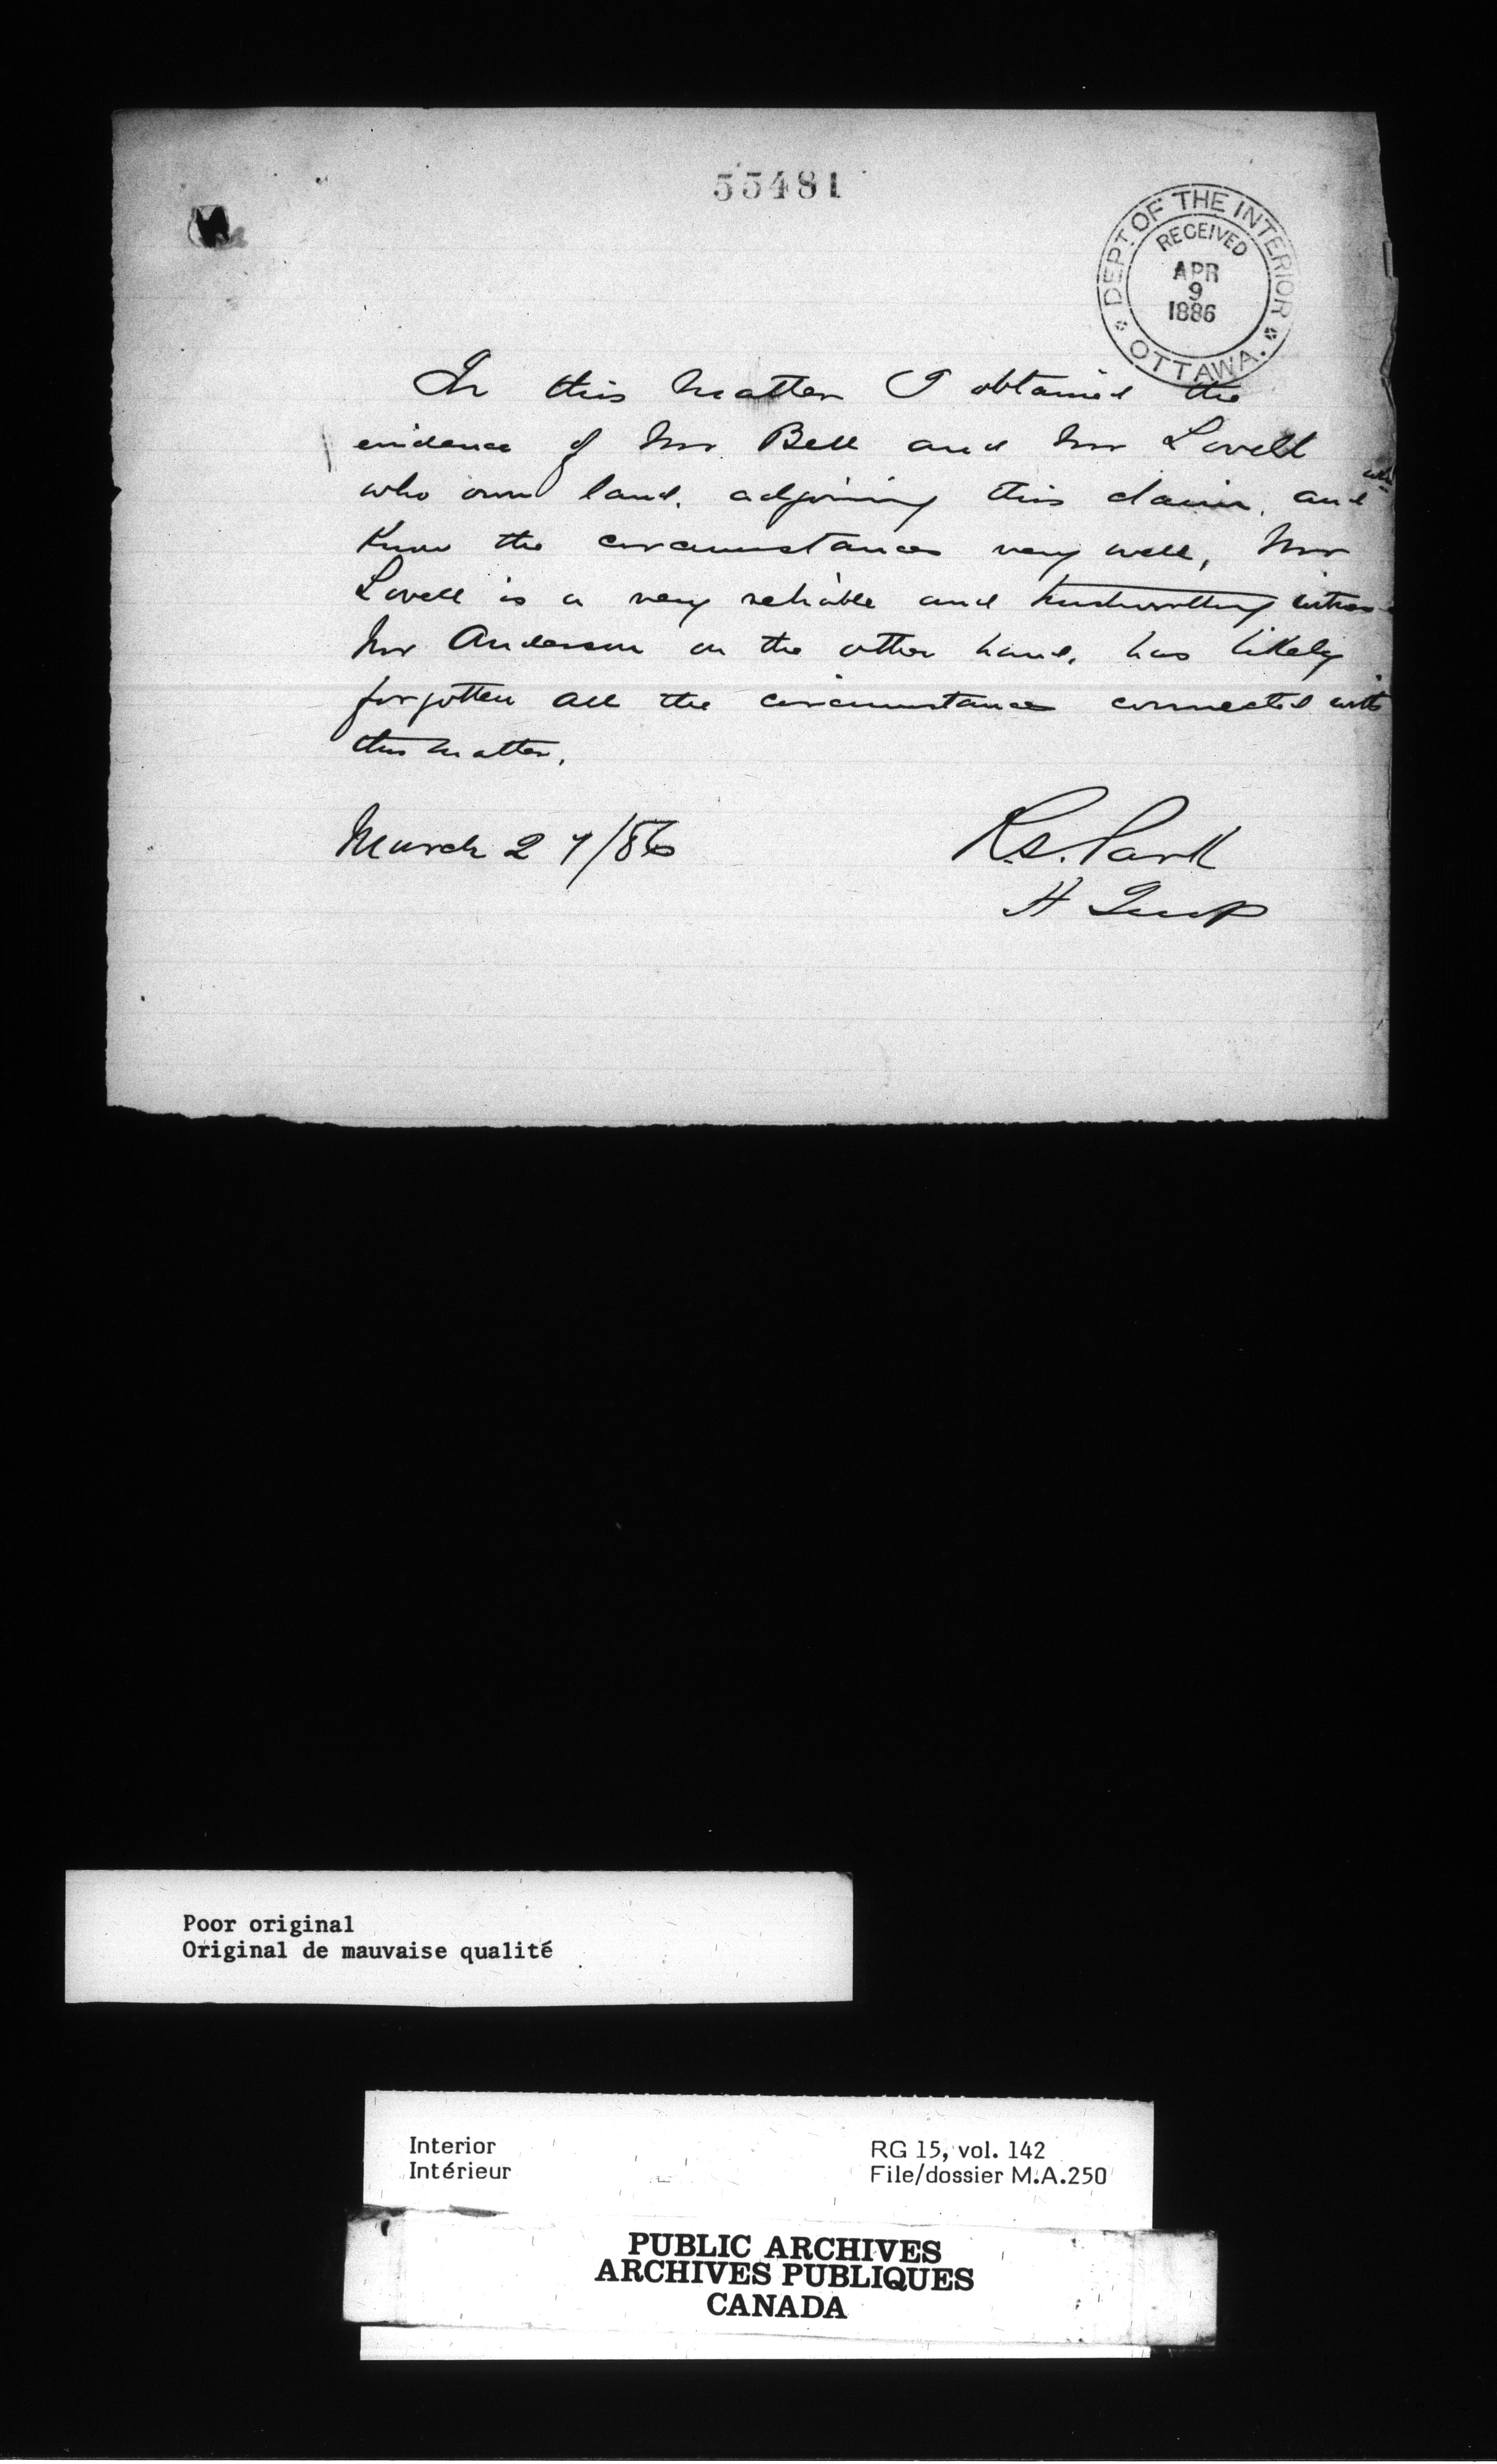 55481
DEPT. OF THE INTERIOR
RECEIVED
APR
9
1886
OTTAWA.
In this matter I obtained the
evidence of Mr Bell and Mr Lovell
who
who own land, adjoining this claim, and
know the circumstances very well, Mr
Lovell is a very reliable and trustworthy witness
Mr Anderson on the other hand, has likely
forgotten all the circumstances connected with
this matter.
March 27/86
R.S. Park
H Insp
Poor original
Original de mauvaise qualité
Interior
Intérieur
RG 15, vol. 142
File/dossier M.A.250
PUBLIC ARCHIVES
ARCHIVES PUBLIQUES
CANADA